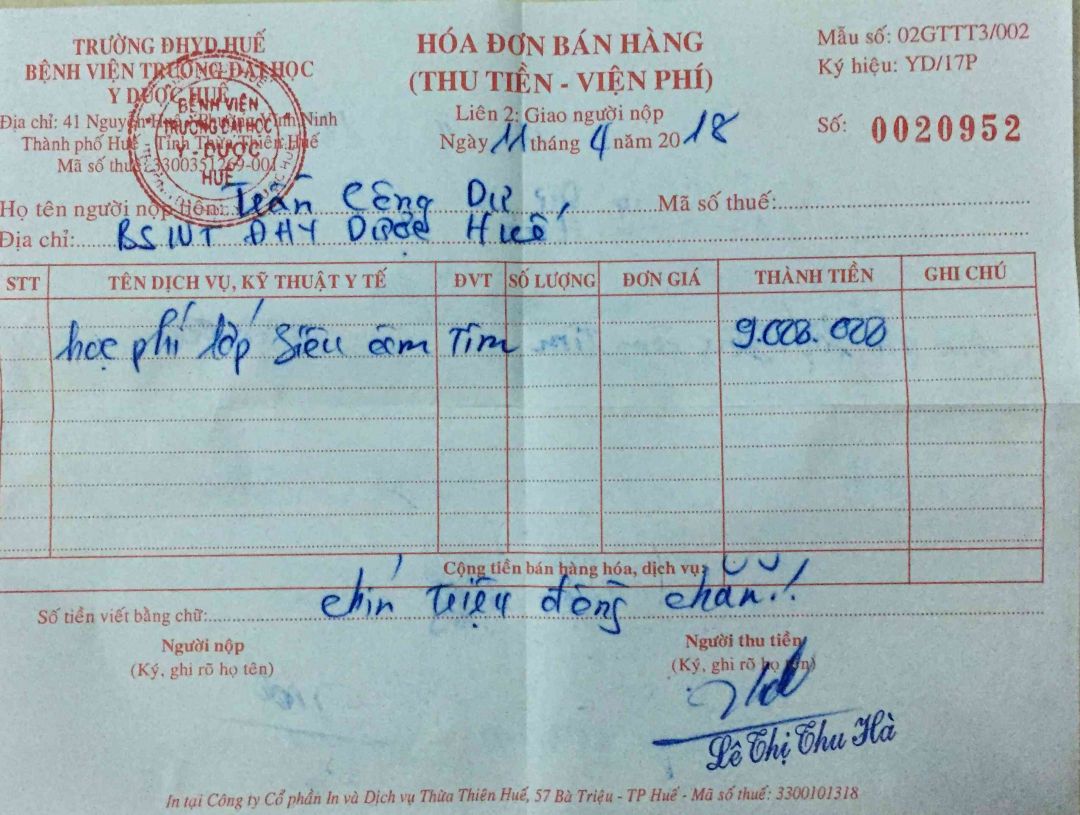 TRƯỜNG ĐHYD HUẾ
BỆNH VIỆN TRƯỜNG ĐẠI HỌC
Y DƯỢC HUẾ
Địa chỉ: 41 Nguyễn Huệ - Phường Vĩnh Ninh
Thành phố Huế - Tỉnh Thừa Thiên Huế
Mã số thuế: 3300351269-001
BỆNH VIỆN
TRƯỜNG ĐẠI HỌC
Y - DƯỢC
HUẾ
HÓA ĐƠN BÁN HÀNG
(THU TIỀN - VIỆN PHÍ)
Liên 2: Giao người nộp
Ngày 11 tháng 4 năm 2018
Mẫu số: 02GTTT3/002
Ký hiệu: YD/17P
Số: 0020952
Họ tên người nộp tiền: Trần Công Dự Mã số thuế:
Địa chỉ: BSNT ĐHY Dược Huế
STT TÊN DỊCH VỤ, KỸ THUẬT Y TẾ ĐVT SỐ LƯỢNG ĐƠN GIÁ THÀNH TIỀN GHI CHÚ
học phí lớp Siêu âm Tim 9.000.000
Cộng tiền bán hàng hóa, dịch vụ:
Số tiền viết bằng chữ: chín triệu đồng chẵn!
Người nộp
(Ký, ghi rõ họ tên)
Người thu tiền
(Ký, ghi rõ họ tên)
Lê Thị Thu Hà
In tại Công ty Cổ phần In và Dịch vụ Thừa Thiên Huế, 57 Bà Triệu - TP Huế - Mã số thuế: 3300101318